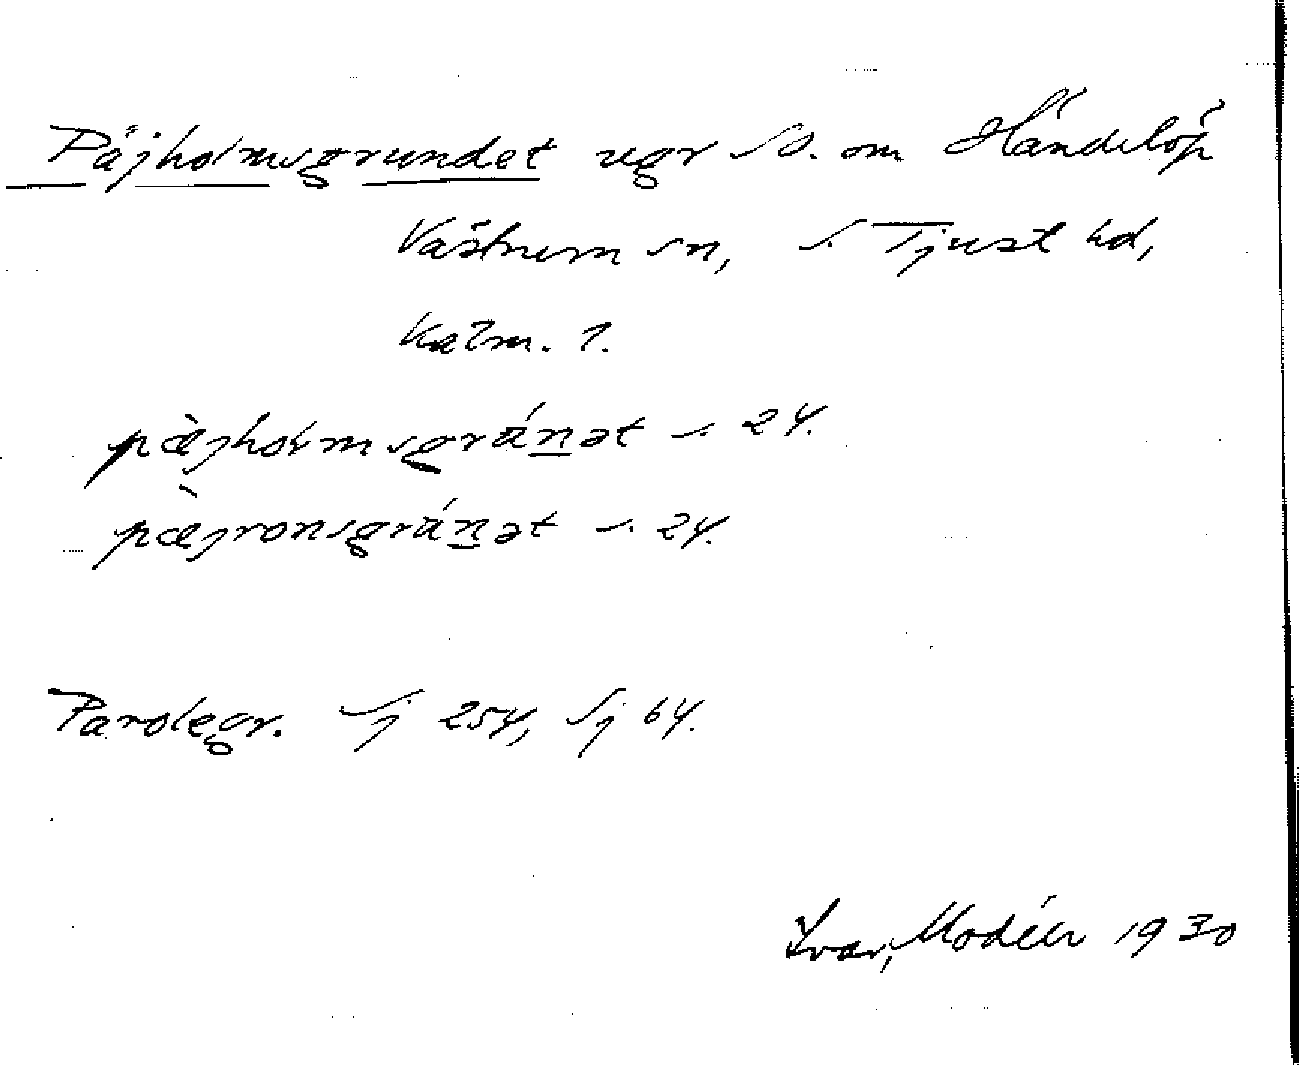 Päjholmsgrundet ugr SO. om Händelöp
Västrum sn, S. Tjust hd,
Kalm. l.
pæ̀jholmsgrúnət s. 24.
pæ̀jronsgrúnət s. 24.
Parolegr. Sj 254, Sj 64.
Ivar Modéer 1930